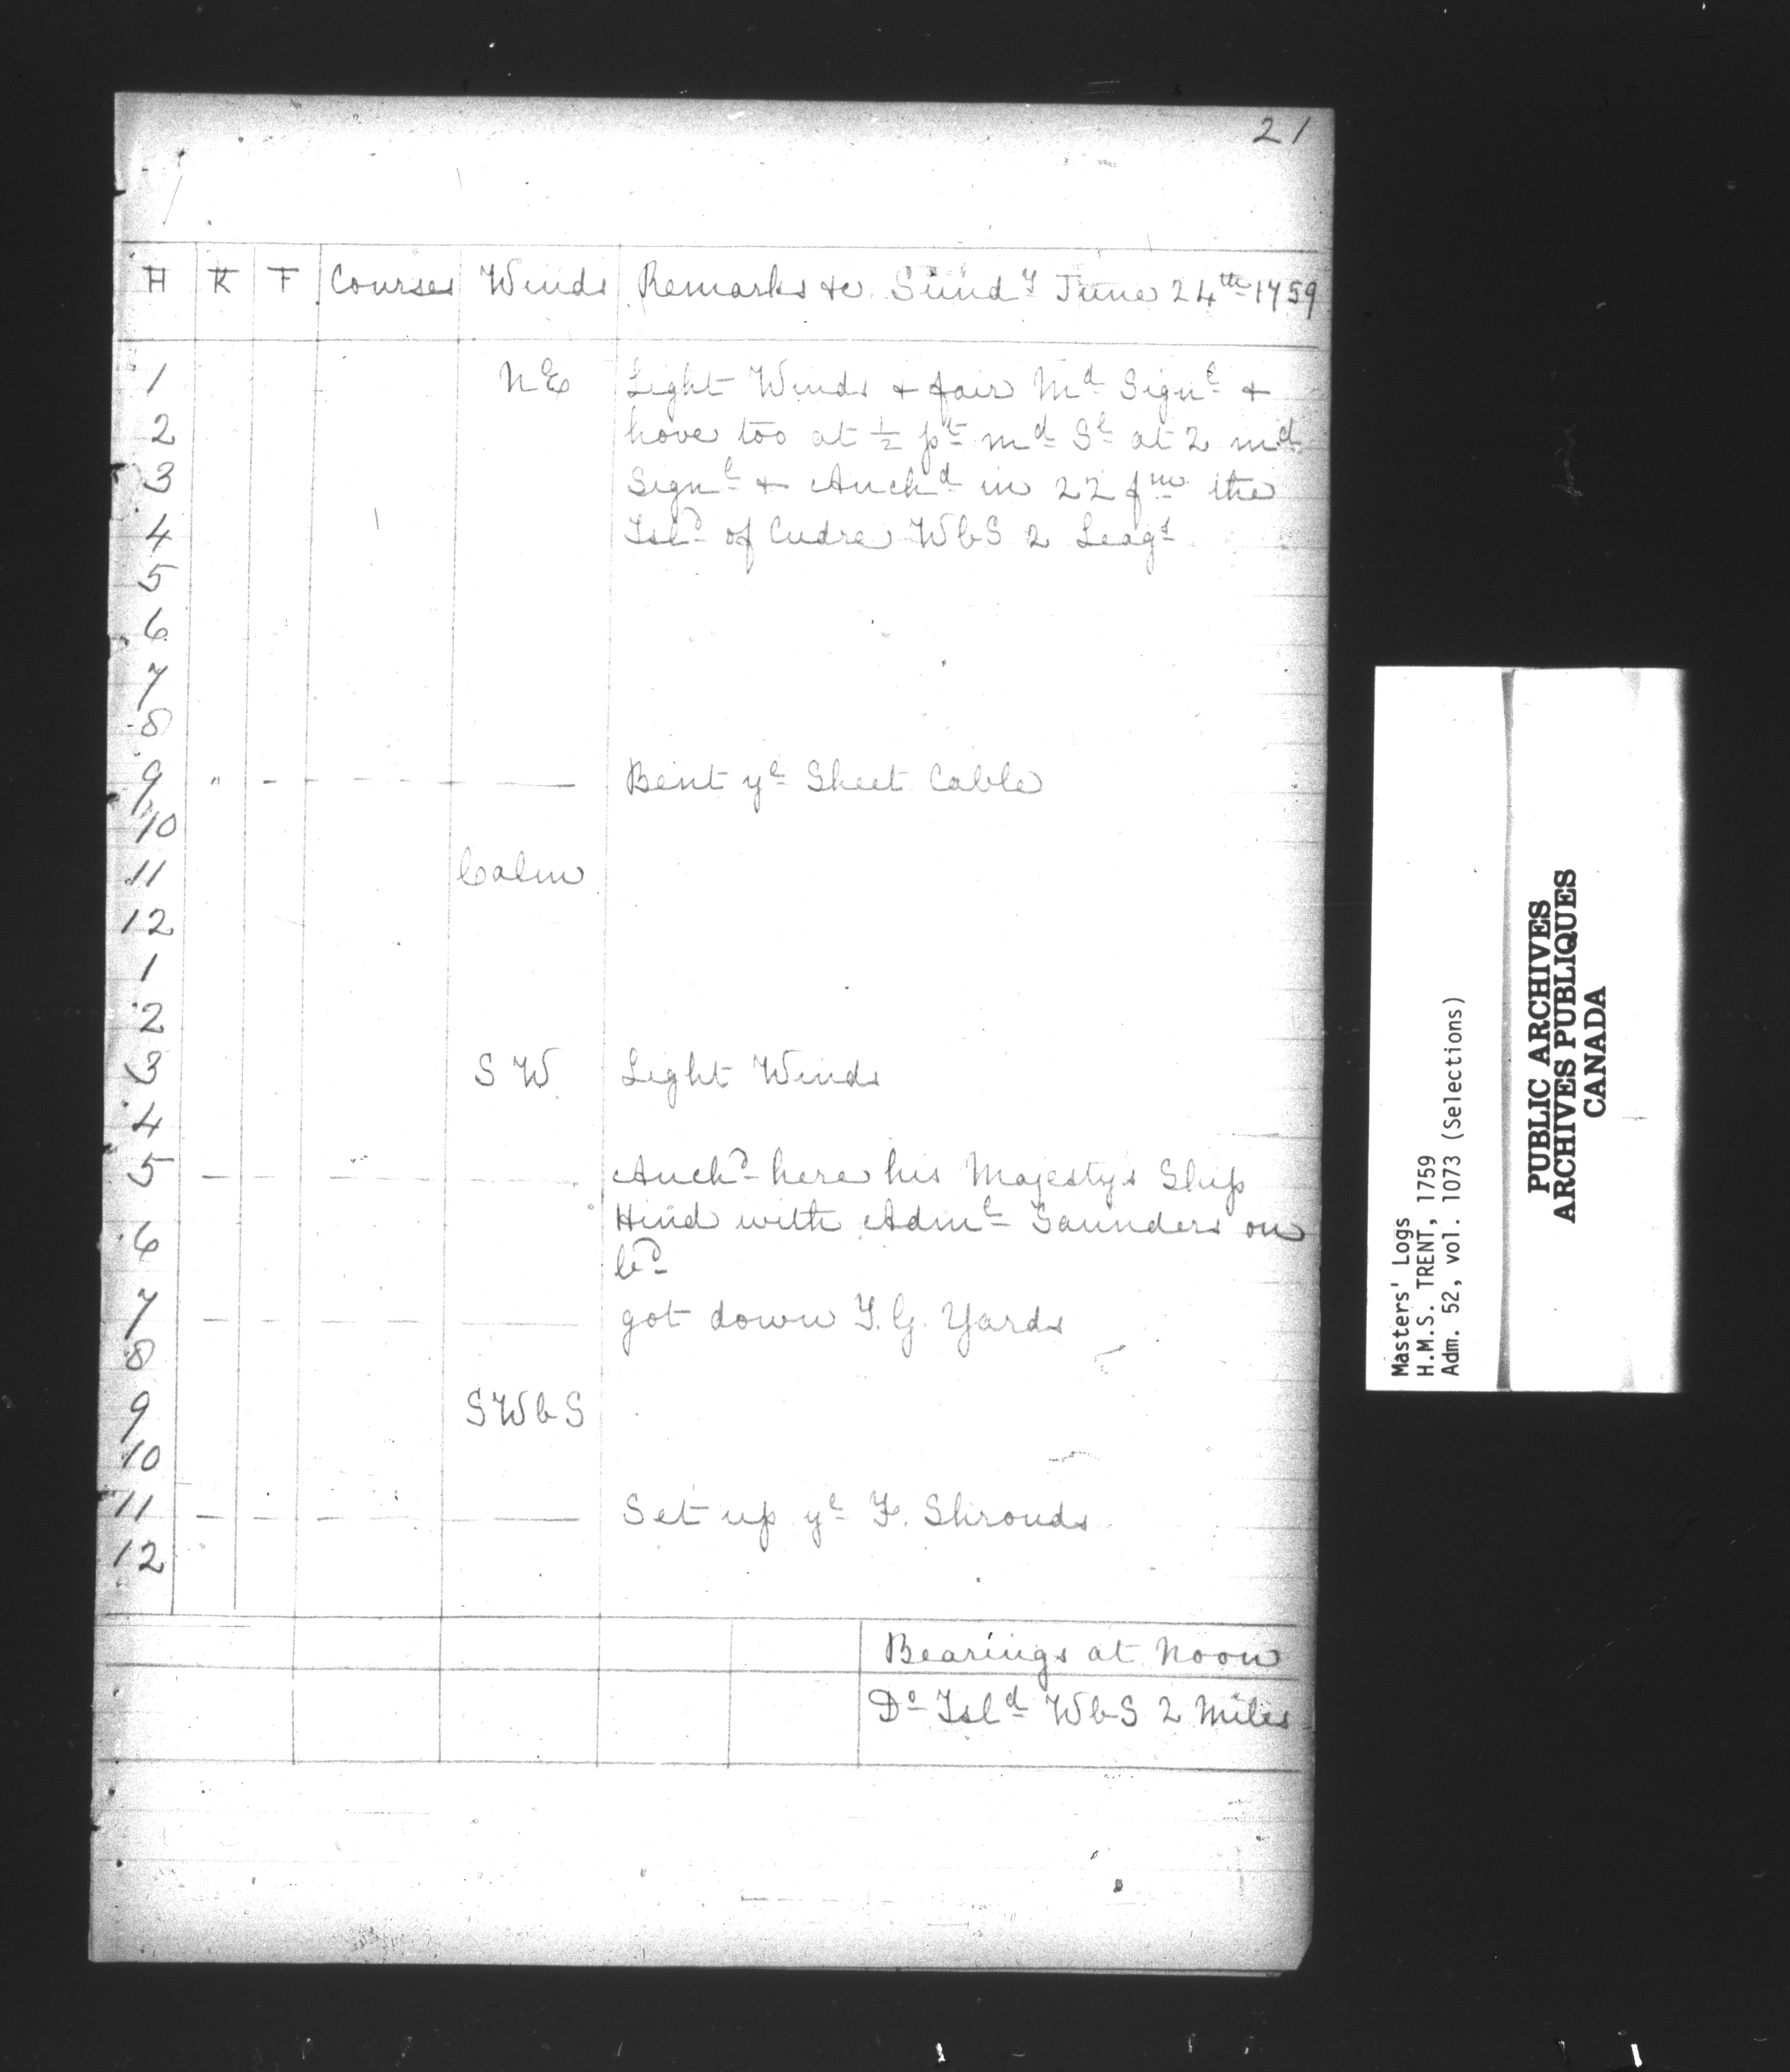 21
H K F Courses Winds Remarks &c. Sund^y June 24^th 1759
1 NE Light Winds + fair M^d Sign^l +
2 hove too at ½ p^t m^d S^l at 2 m^d
3 Sign^l + Anch^d in 22 f^m the
4 Isl^d of Cudre WbS 2 Leag^s
5
6
7
8
9 " - - — Bent y^e Sheet Cable
10
11 Calm
12
1
2
3 SW Light Winds
4
5 — — — — Anch^d here his Majesty's Ship
6 Hind with Adm^l Saunders on
b^d
7 — — — — got down T.G. Yards
8
9 SWbS
10
11 — — — — Set up y^e F. Shrouds
12
Bearings at Noon
D^o Isl^d WbS 2 Miles
Masters' Logs
H.M.S. TRENT, 1759
Adm. 52, vol. 1073 (Selections)
PUBLIC ARCHIVES
ARCHIVES PUBLIQUES
CANADA